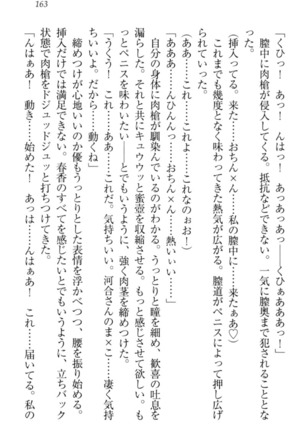 163
「くひっ！　あっ……んはっ！　あっあっあっ――くひぁあああっ！」
膣中に肉槍が侵入してくる。抵抗などできない。一気に膣奥まで犯されることとな
った。
（挿入ってる。来た……おちん×ん……私の膣中に……来たぁぁ♡）
これまでも幾度となく味わってきた熱気が広がる。膣道がペニスによって押し広げ
られていった。
（あああ……これ……これ……これなのぉお！）
「あああ……んひんんっ……おちん×ん……熱いい……」
自分の身体に肉槍が馴染んでいるのがわかる。うっとりと瞳を細め、歓喜の吐息を
漏らした。それと共にキュウウッと蜜壺を収縮させる。もっと感じさせて欲しい。も
っとペニスを味わいたい――とでもいうように、強く肉茎を締めつけた。
「くうう！　これ……ああ……これだ。気持ちいい。河合さんのま×こ……凄く気持
ちいいよ。だから……動くね」
締めつけが心地いいのか優もうっとりとした表情を浮かべつつ、腰を振り始める。
挿入だけでは満足できない。春香のすべてを感じたいとでもいうように、立ちバック
状態で肉槍をドジュッドジュッと打ちつけてきた。
「んはぁあ！　動き……始めた！　あっは……んはぁあ！　これ……届いてる。私の